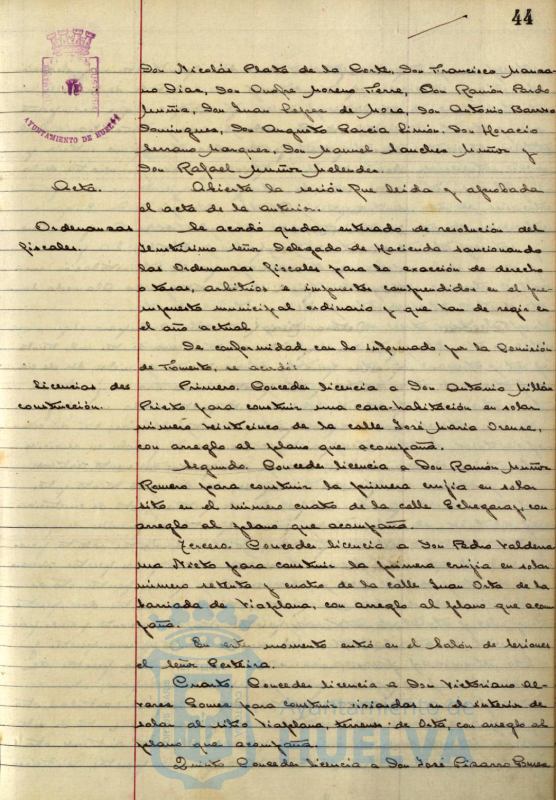 44
AYUNTAMIENTO DE HUELVA
Don Nicolás Plata de la Corte, Don Francisco Manza-
no Diaz, Don Onofre Moreno Terre, Don Ramón Pardo
Muñiz, Don Juan Lopez de Mora, Don Antonio Barro
Dominguez, Don Augusto Garcia Limón, Don Horacio
Serrano Marquez, Don Manuel Sanchez Muñoz y
Don Rafael Muñoz Melendez.
Acta. Abierta la sesión fue leida y aprobada
el acta de la anterior.
Ordenanzas Se acordó quedar enterado de resolución del
fiscales. Ilustrísimo señor Delegado de Hacienda sancionando
las Ordenanzas fiscales para la exacción de derecho
o tasas, arbitrios e impuestos comprendidos en el pre-
supuesto municipal ordinario y que han de regir en
el año actual
De conformidad con lo informado por la Comisión
de Fomento, se acordó:
Licencias de Primero. Conceder licencia a Don Antonio Millán
construcción. Prieto para construir una casa-habitación en solar
número veinticinco de la calle José Maria Orense,
con arreglo al plano que acompaña.
Segundo. Conceder licencia a Don Ramón Muñoz
Romero para construir la primera crujia en solar
sito en el número cuatro de la calle Echegaray, con
arreglo al plano que acompaña.
Tercero. Conceder licencia a Don Pedro Valderra-
ma Nieto para construir la primera crujia en solar
número setenta y cuatro de la calle Juan Orta de la
barriada de Viaplana, con arreglo al plano que acom-
paña.
En este momento entró en el Salón de sesiones
el señor
Cuarto. Conceder licencia a Don Victoriano Al-
varez Gomez para construir viviendas en el interior de
solar al sitio Viaplana, terrenos de Orta, con arreglo al
plano que acompaña.
Quinto Conceder licencia a Don José Pizarro
Ayuntamiento de
HUELVA